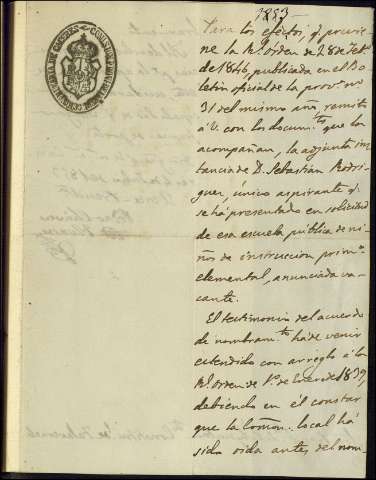 1853
Para los efectos, q. previe-
ne la Rl. orden de 28 de Feb.
de 1846, publicada en el Bo-
letin oficial de la prov.ª nº.
31 del mismo año, remito
á V. con los docum.tos que la
acompañan, la adjunta ins-
tancia de D. Sebastián Rodri-
guez, único aspirante q.
se há presentado en solicitud
de esa escuela pública de ni-
ños de instruccion prim.ª
elemental, anunciada va-
cante.
El testimonio del acuerdo
de nombram.to há de venir
estendido con arreglo á la
Rl. orden de 1º. de Enero de 1839,
debiendo en él constar
que la Comon. local há
sido oida antes del nom-